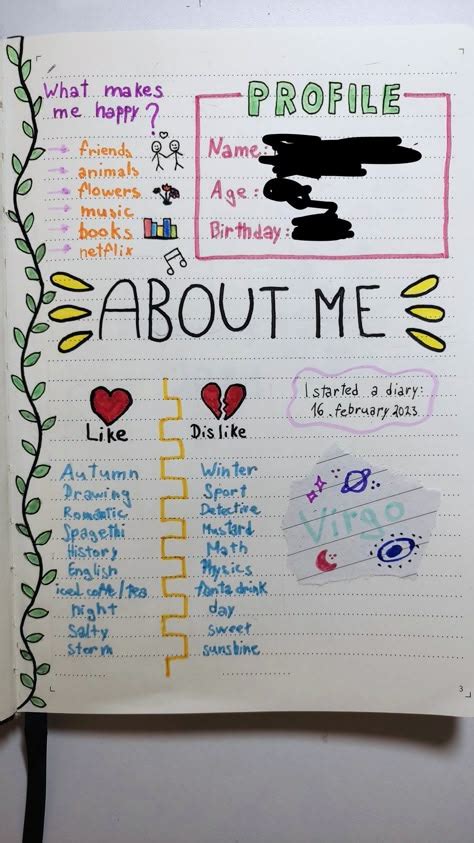 What makes
me happy?
friends
animals
flowers
music
books
netflix
PROFILE
Name:
Age:
Birthday:
ABOUT ME
Like
Dislike
I started a diary:
16.february 2023
Autumn
Drawing
Romantic
Spagethi
History
English
iced coffe/tea
night
Salty
storm
Winter
Sport
Detective
Mustard
Math
Physics
fanta drink
day
sweet
sunshine
Virgo
3